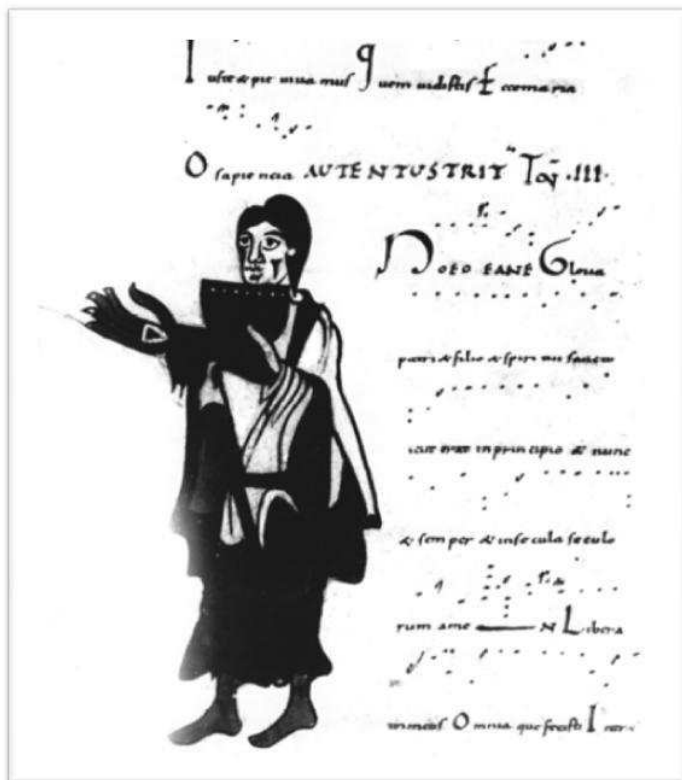 I uste & pie viva mus Q uem vidistis E cce maria
O sapiencia AUTENTUSTRIT TOÑ .III.
NOEO EANE Gloria
patri & filio & spiri tui sancto
icut erat in principio & nunc
& semper & inse cula seculo
rum ame N Libera
Omnia que fecisti I